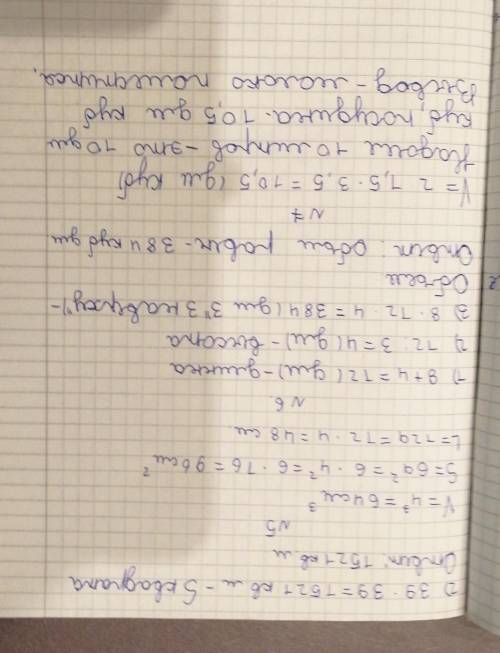 2) 39 · 39 = 1521 кв м - S квадрата
Ответ: 1521 кв м
N5
V = 4³ = 64 см³
S = 6a² = 6 · 4² = 6 · 16 = 96 см²
L = 12a = 12 · 4 = 48 см.
N6
1) 8 + 4 = 12 (дм) - длинна
2) 12 : 3 = 4 (дм) - высота
3) 8 · 12 · 4 = 384 (дм "3" 3 наверху) -
Объем
Ответ: объем равен - 384 куб дм
N7
V = 2 1,5 · 3,5 = 10,5 (дм куб)
Надоили 10 литров - это 10 дм
куб, посудина - 10,5 дм куб
Вывод - молоко поместится.